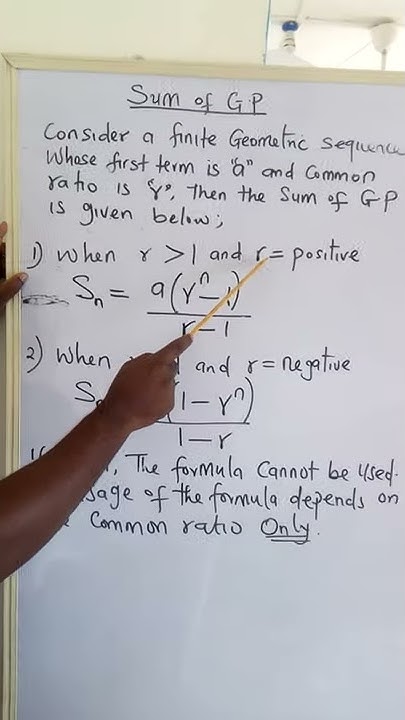 Sum of G.P
Consider a finite Geometric sequence
whose first term is "a" and Common
ratio is "r", Then the Sum of GP
is given below;
1) when r > 1 and r = positive
Sn = a(r^n - 1)
r - 1
2) when and r = negative
(1 - r^n)
1 - r
, The formula Cannot be Used.
of the formula depends on
Common ratio Only.